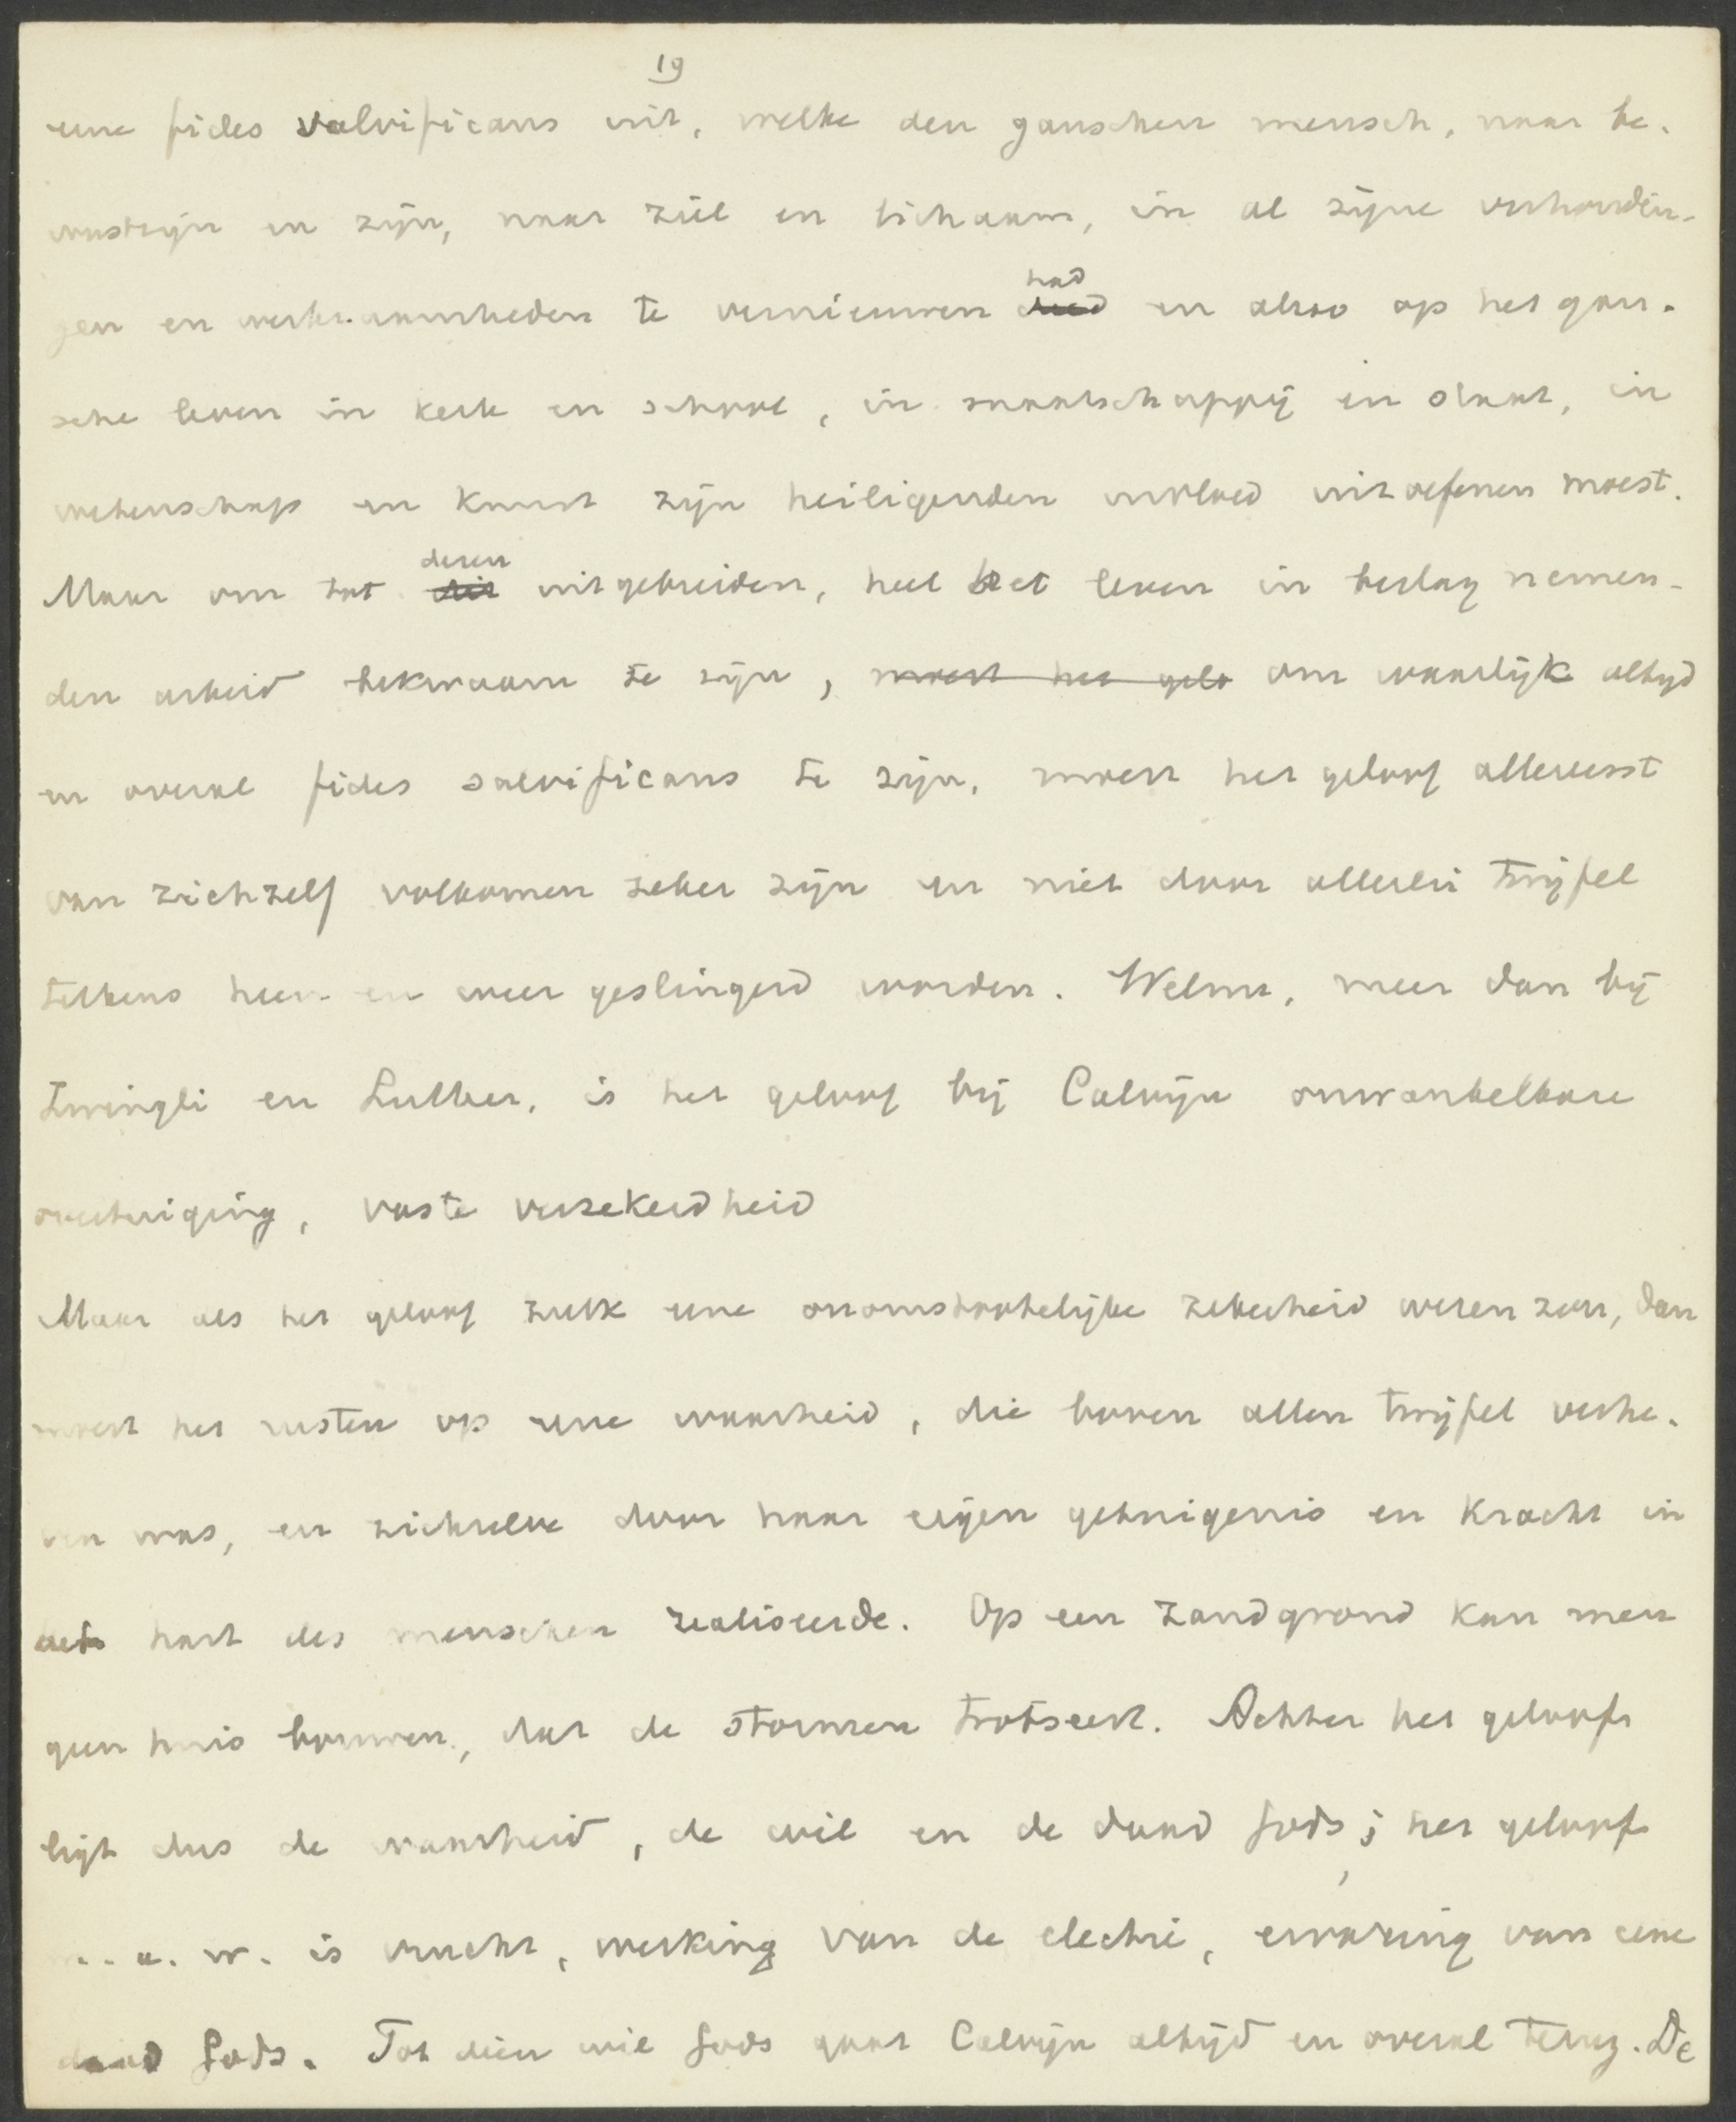 19
eene fides salvificans uit, welke den ganschen mensch, naar be-
wustzijn en zijn, naar ziel en lichaam, in al zijne verhoudin-
had
gen en werkzaamheden te vernieuwen deed en alzoo op het gan-
sche leven in kerk en school, in maatschappij en staat, in
wetenschap en kunst zijn heiligenden invloed uitoefenen moest.
dezen
Maar om tot dit uitgebreiden, heel het leven in beslag nemen-
den arbeid bekwaam te zijn, moest het gelo om waarlijk altijd
en overal fides salvificans te zijn, moest het geloof allereerst
van zichzelf volkomen zeker zijn en niet door allerlei twijfel
telkens heen en weer geslingerd worden. Welnu, meer dan bij
Zwingli en Luther, is het geloof bij Calvijn onwankelbare
overtuiging, vaste verzekerdheid
Maar als het geloof zulk eene onomstootelijke zekerheid wezen zou, dan
moest het rusten op eene waarheid, die boven allen twijfel verhe-
ven was, en zichzelve door haar eigen getuigenis en kracht in
het hart des menschen realiseerde. Op een zandgrond kan men
geen huis bouwen, dat de stormen trotseert. Achter het geloof
ligt dus de waarheid, de wil en de daad Gods; het geloof
m. a. w. is vrucht, werking van de electie, ervaring van eene
daad Gods. Tot dien wil Gods gaat Calvijn altijd en overal terug. De